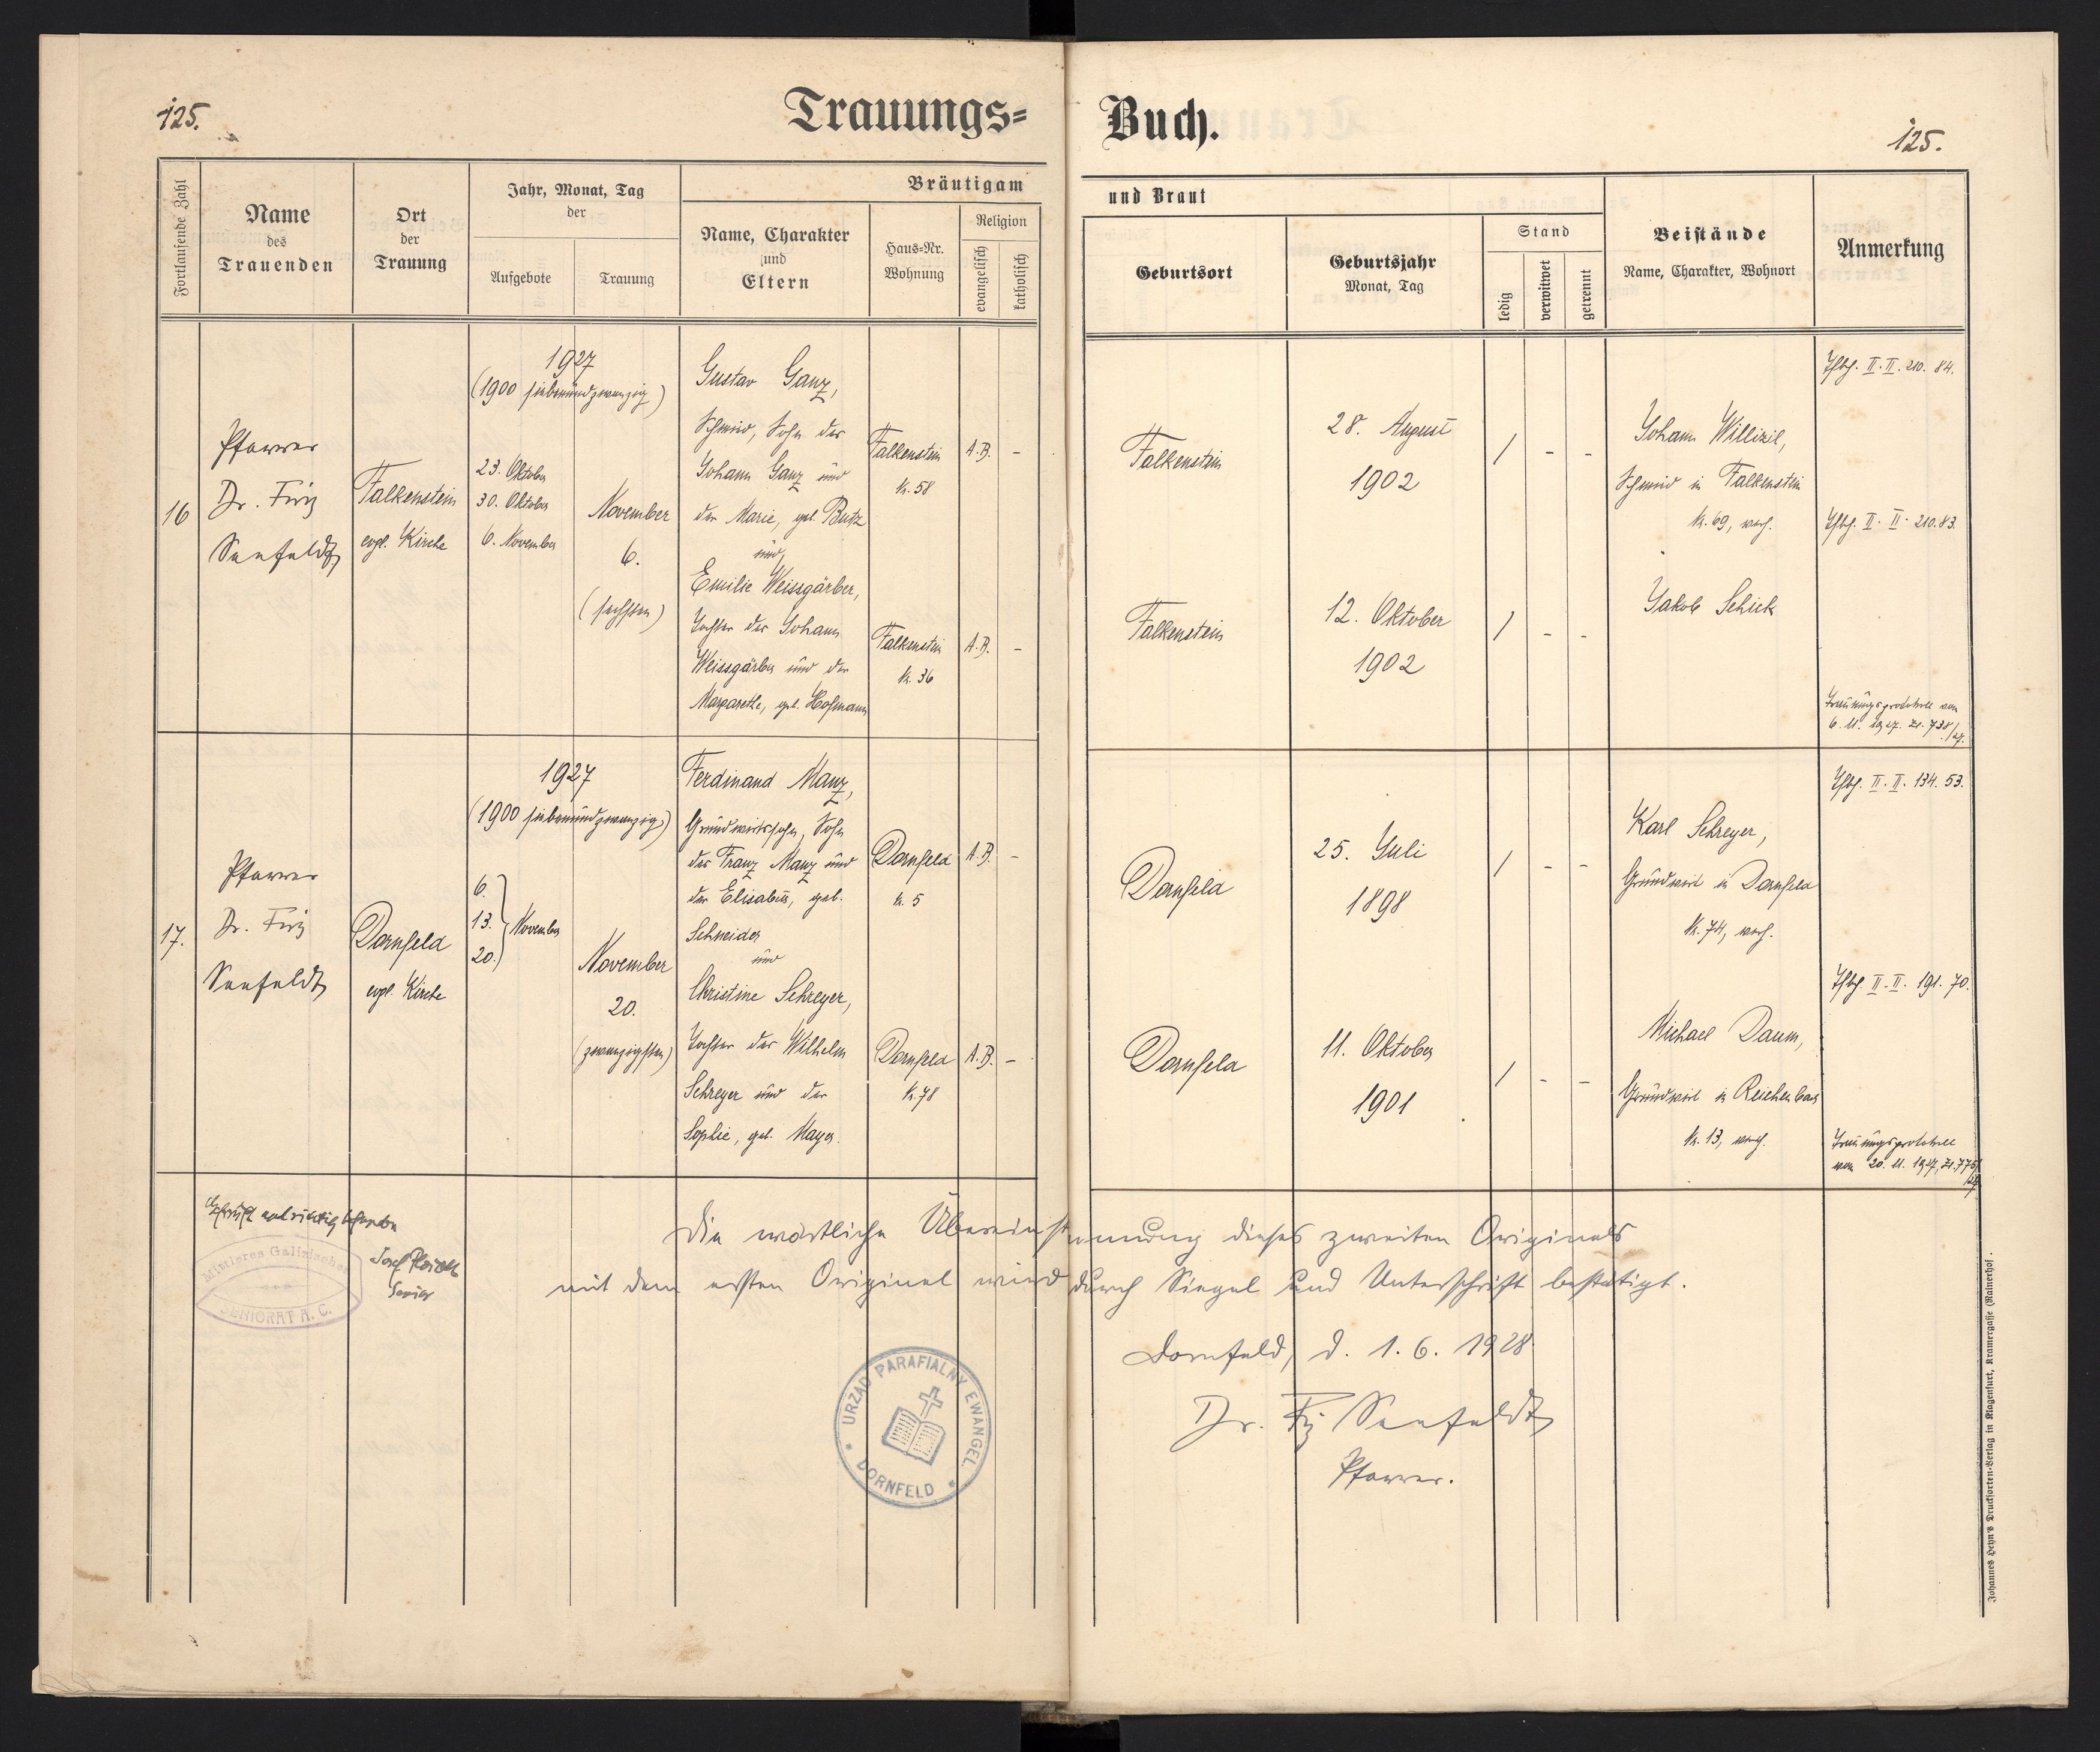 125.
Trauungs=
Buch.
125.
Fortlaufende Zahl
Name
des
Trauenden
Ort
der
Trauung
Jahr, Monat, Tag
der
Aufgebote
Trauung
Bräutigam
Name, Charakter
und
Eltern
Haus=Nr.
Wohnung
Religion
evangelisch
katholisch
und Braut
Geburtsort
Geburtsjahr
Monat, Tag
Stand
ledig
verwitwet
getrennt
Beistände
Name, Charakter, Wohnort
Anmerkung
16
Pfarrer
Dr. Fritz
Seefeldt
Falkenstein
evgl. Kirche
1927
(1900 siebenundzwanzig)
23. Oktober
30. Oktober
6. November
November
6.
(sechsten)
Gustav Ganz,
Schmied, Sohn des
Johann Ganz und
der Marie, geb. Butz
und
Emilie Weissgärber,
Tochter des Johann
Weissgärber und der
Margarethe, geb. Hofmann
Falkenstein
Nr. 58
A.B. -
Falkenstein
Nr. 36
A.B. -
Falkenstein
28. August
1902
/ - -
Falkenstein
12. Oktober
1902
/ - -
Johann Willizil,
Schmied in Falkenstein
Nr. 69, verh.
Jakob Schick
Tfbg. II. II. 210. 84.
Tfbg. II. II. 210. 83.
Trauungsprotokoll vom
6. 11. 1927. Zl. 738/27.
17.
Pfarrer
Dr. Fritz
Seefeldt
Dornfeld
evgl. Kirche
1927
(1900 siebenundzwanzig)
6.
13. November
20.
November
20.
(zwanzigsten)
Ferdinand Manz,
Grundwirtssohn, Sohn
des Franz Manz und
der Elisabet, geb.
Schneider
und
Christine Schreyer,
Tochter des Wilhelm
Schreyer und der
Sophie, geb. Mayer.
Dornfeld
Nr. 5
A.B. -
Dornfeld
Nr. 78
A.B. -
Dornfeld
25. Juli
1898
/ - -
Dornfeld
11. Oktober
1901
/ - -
Karl Schreyer,
Grundwirt in Dornfeld
Nr. 74, verh.
Michael Daum,
Grundwirt in Reichenbach
Nr. 13, verh.
Tfbg. II. II. 134. 53.
Tfbg. II. II. 191. 70.
Trauungsprotokoll
vom 20. 11. 1927, Zl. 775/27
Geprüft und richtig befunden
Mittleres Galizisches
SENIORAT A. C.
Senior
Die wörtliche Übereinstimmung dieses zweiten Originals
mit dem ersten Original wird durch Siegel und Unterschrift bestätigt.
Dornfeld, d. 1. 6. 1928.
Dr. Fritz Seefeldt
Pfarrer.
URZĄD PARAFIALNY EWANGEL
DORNFELD
Johannes Heyn's Drucksorten=Verlag in Klagenfurt, Kramergasse (Rainerhof).